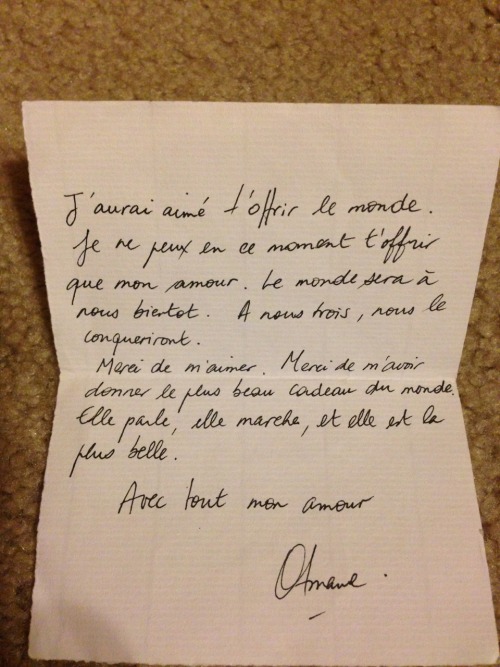 J'aurai aimé t'offrir le monde.
Je ne peux en ce moment t'offrir
que mon amour. Le monde sera à
nous bientot. A nous trois, nous le
conqueriront.
Merci de m'aimer. Merci de m'avoir
donner le plus beau cadeau du monde.
Elle parle, elle marche, et elle est la
plus belle.
Avec tout mon amour
Otmane.